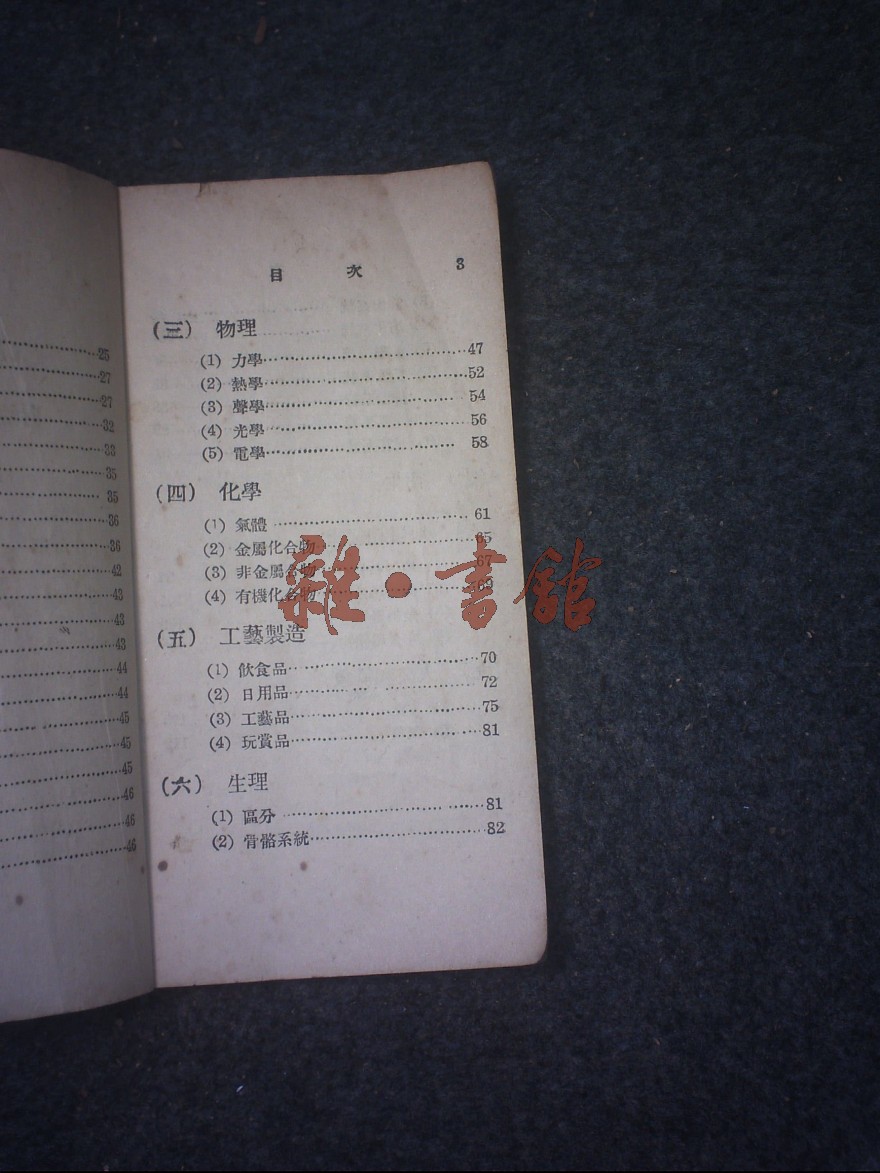 25
27
27
32
33
35
35
36
36
42
43
43
43
44
44
45
45
45
46
46
46
目 次 3
(三) 物理
(1) 力學 47
(2) 熱學 52
(3) 聲學 54
(4) 光學 56
(5) 電學 58
(四) 化學
(1) 氣體 61
(2) 金屬化合物 65
(3) 非金屬合物 67
(4) 有機化合物 69
(五) 工藝製造
(1) 飲食品 70
(2) 日用品 72
(3) 工藝品 75
(4) 玩賞品 81
(六) 生理
(1) 區分 81
(2) 骨骼系統 82
雜·書館